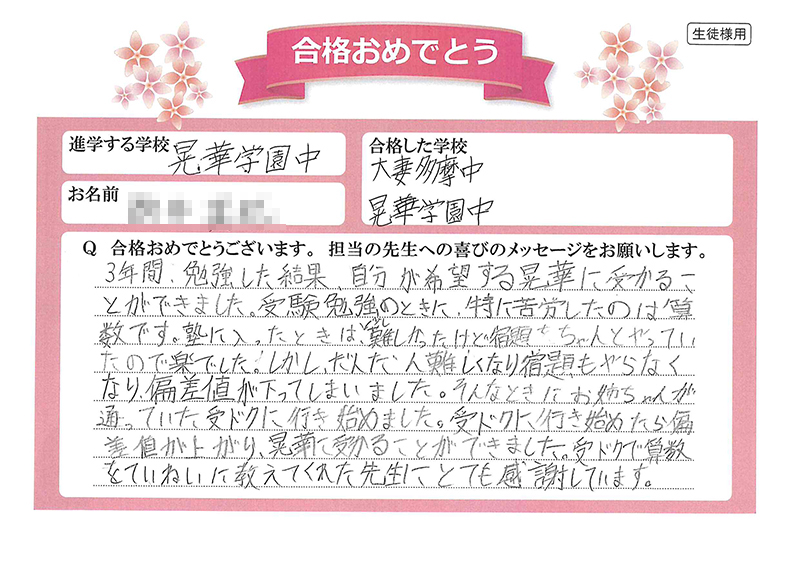 合格おめでとう
生徒様用
進学する学校 晃華学園中
合格した学校
大妻多摩中
晃華学園中
お名前
Q 合格おめでとうございます。 担当の先生への喜びのメッセージをお願いします。
3年間、勉強した結果、自分が希望する晃華に受かるこ
とができました。受験勉強のときに、特に苦労したのは算
数です。塾に入ったときは、難しかったけど宿題もちゃんとやってい
たので楽でした。しかし、だんだん難しくなり宿題もやらなく
なり、偏差値が下ってしまいました。そんなときにお姉ちゃんが
通っていた受ドクに行き始めました。受ドクに行き始めたら偏
差値が上がり、晃華に受かることができました。受ドクで算数
をていねいに教えてくれた先生にとても感謝しています。